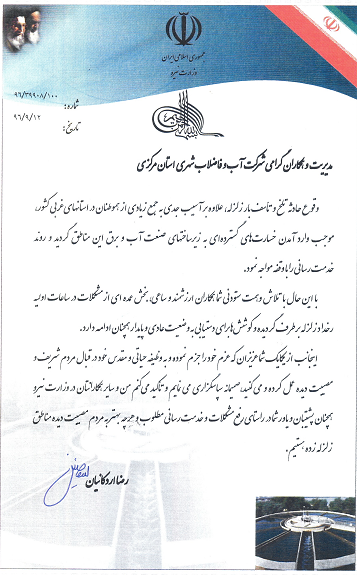 جمهوری اسلامی ایران
وزارت نیرو
شماره: ۹۶/۳۹۹۰۸/۱۰۰
تاریخ: ۹۶/۹/۱۲
مدیریت و همکاران گرامی شرکت آب و فاضلاب شهری استان مرکزی
وقوع حادثه تلخ و تاسف بار زلزله، علاوه بر آسیب جدی به جمع زیادی از هموطنان در استانهای غربی کشور،
موجب وارد آمدن خسارت‌های گسترده‌ای به زیرساختهای صنعت آب و برق این مناطق گردید و روند
خدمت رسانی را با وقفه مواجه نمود.
با این حال با تلاش و همت ستودنی شما همکاران ارزشمند و ساعی، بخش عمده ای از مشکلات در ساعات اولیه
رخداد زلزله برطرف گردیده و کوشش‌ها برای دستیابی به وضعیت عادی و پایدار همچنان ادامه دارد.
اینجانب از یکایک شما عزیزان که عزم خود را جزم نموده و به وظیفه حیاتی و مقدس خود در قبال مردم شریف و
مصیبت دیده عمل کرده و می کنید، صمیمانه سپاسگزاری می نمایم و تاکید می‌کنم من و سایر همکارانتان در وزارت نیرو
همچنان پشتیبان و یاور شما در راستای رفع مشکلات و خدمت رسانی مطلوب و هرچه بهتر به مردم مصیبت دیده مناطق
زلزله زده هستیم.
رضا اردکانیان